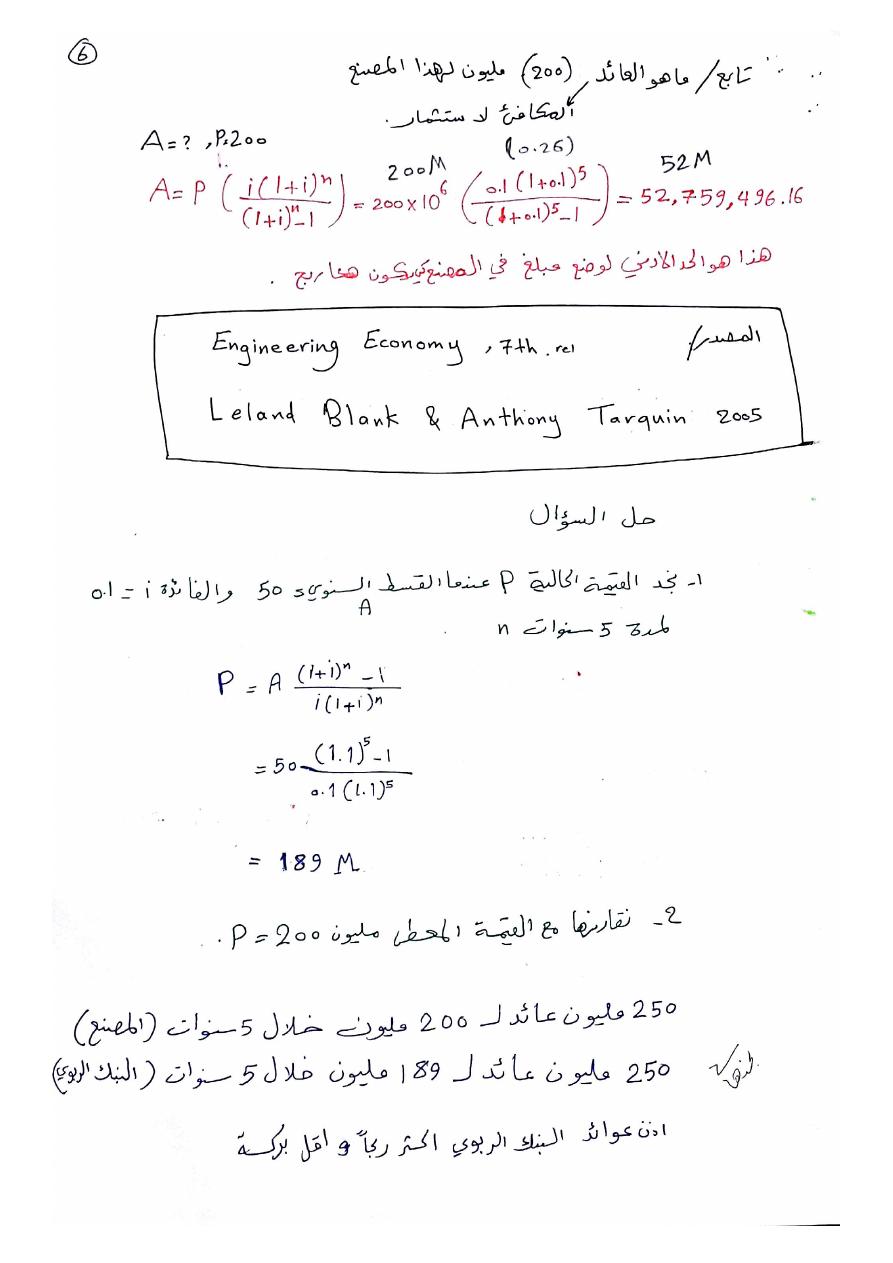 6
تابع/ ماهو العائد (200) مليون لهذا المصنع
المكافئ لاستثمار.
A = ? , P=200
(0.26)
200M
52M
A = P ( i(1+i)^n / (1+i)^n - 1 ) = 200×10^6 ( 0.1(1+0.1)^5 / (1+0.1)^5 - 1 ) = 52,759,496.16
هذا هو الحد الادنى لوضع مبلغ في المصنع كي يكون
المصدر/
Engineering Economy , 7th.
Leland Blank & Anthony Tarquin 2005
حل السؤال
1- نجد القيمة الحالية P عندما القسط السنوي = 50 والفائدة i = 0.1
A
لمدة 5 سنوات n
P = A (1+i)^n - 1 / i(1+i)^n
= 50 (1.1)^5 - 1 / 0.1(1.1)^5
= 189 M
2- نقارنها مع القيمة المعطى مليون P = 200.
250 مليون عائد لـ 200 مليون خلال 5 سنوات (المصنع)
250 مليون عائد لـ 189 مليون خلال 5 سنوات (البنك الربوي)
اذن عوائد البنك الربوي اكثر ربحاً و اقل بركة